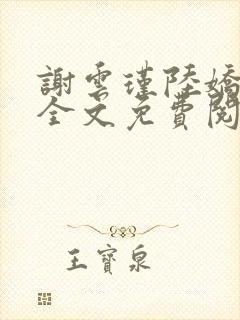 謝雲瑾陸嬌
全文免費閱
王寶泉